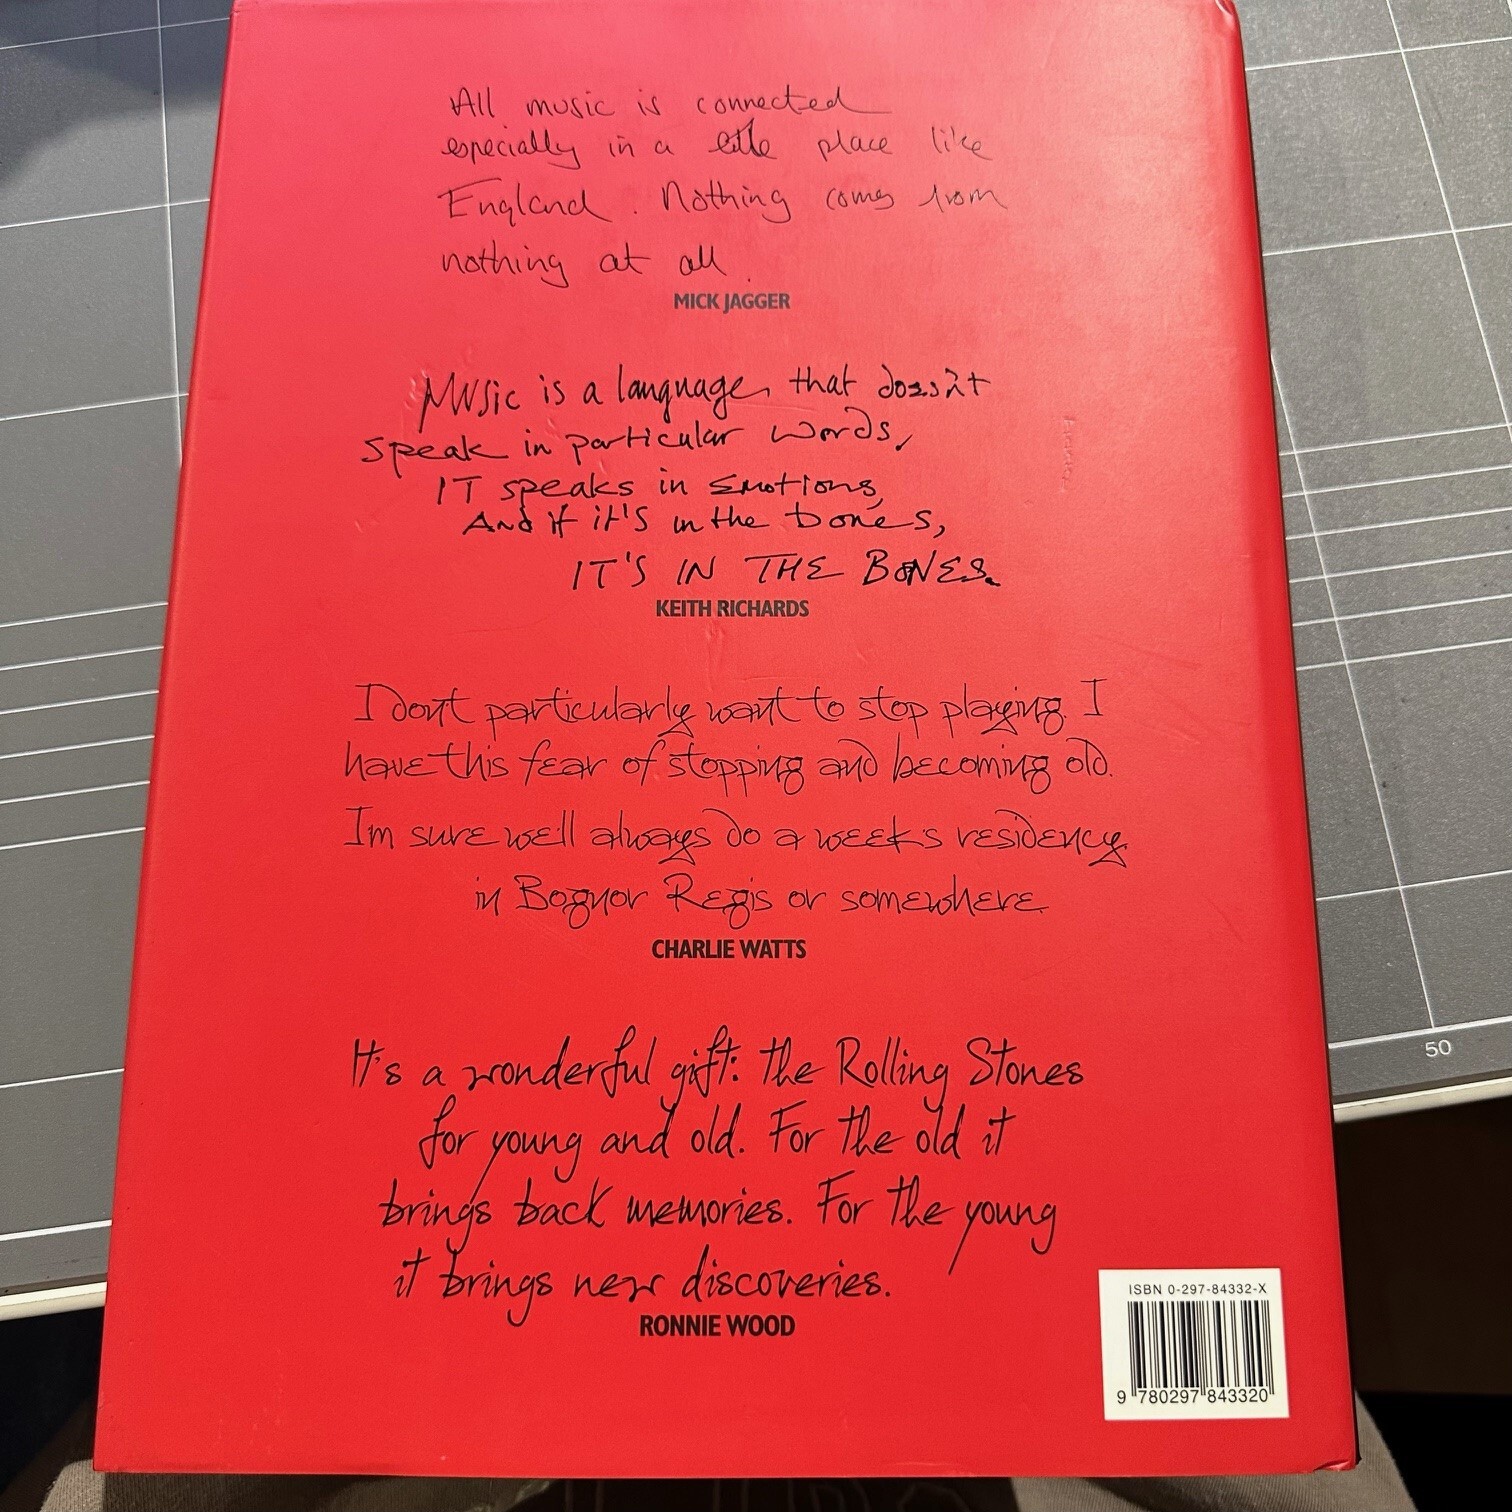 All music is connected
especially in a little place like
England. Nothing comes from
nothing at all.
MICK JAGGER
Music is a language, that doesn't
speak in particular words,
IT speaks in Emotions,
And if it's in the bones,
IT'S IN THE BONES.
KEITH RICHARDS
I dont particularly want to stop playing. I
have this fear of stopping and becoming old.
Im sure well always do a weeks residency
in Bognor Regis or somewhere.
CHARLIE WATTS
It's a wonderful gift: the Rolling Stones
for young and old. For the old it
brings back memories. For the young
it brings new discoveries.
RONNIE WOOD
50
ISBN 0-297-84332-X
9 780297 843320